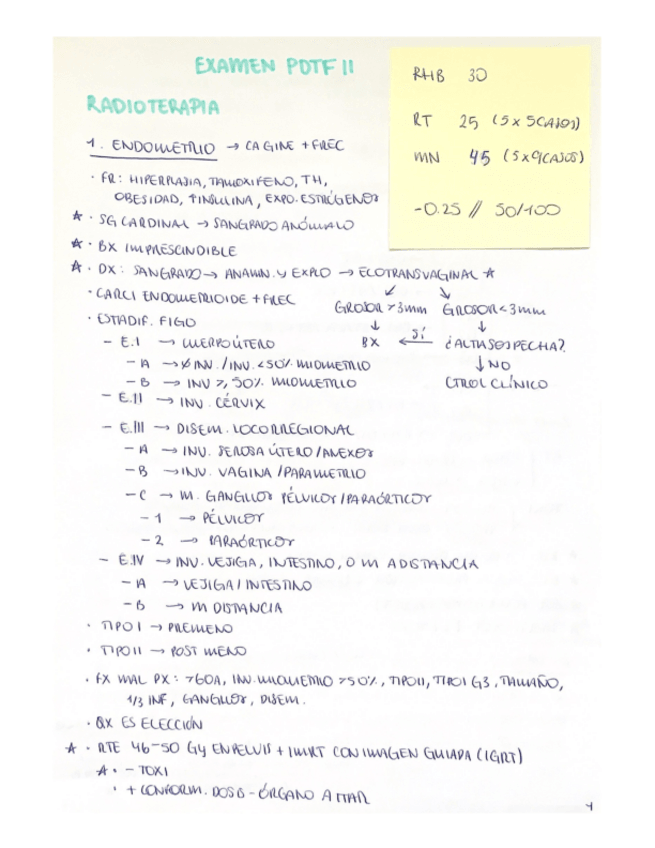 EXAMEN PDTF II
RHB 30
RT 25 (5 x 5 CASOS)
MN 45 (5 x 9 CASOS)
-0.25 // 50/100
RADIOTERAPIA
1. ENDOMETRIO → CA GINE + FREC
· FR: HIPERPLASIA, TAMOXIFENO, TH,
OBESIDAD, ↑INSULINA, EXPO. ESTRÓGENOS
★ · SG CARDINAL → SANGRADO ANÓMALO
★ · BX IMPRESCINDIBLE
★ · DX: SANGRADO → ANAMN. y EXPLO → ECOTRANSVAGINAL ★
· CARCI ENDOMETRIOIDE + FREC
GROSOR > 3mm GROSOR < 3mm
· ESTADIF. FIGO
BX ← SÍ ¿ALTA SOSPECHA?
↓ NO
CTROL CLÍNICO
- E.I → CUERPO ÚTERO
- A → Ø INV. / INV. < 50% MIOMETRIO
- B → INV ≥ 50% MIOMETRIO
- E.II → INV. CÉRVIX
- E.III → DISEM. LOCORREGIONAL
- A → INV. SEROSA ÚTERO / ANEXOS
- B → INV. VAGINA / PARAMETRIO
- C → M. GANGLIOS PÉLVICOS / PARAÓRTICOS
- 1 → PÉLVICOS
- 2 → PARAÓRTICOS
- E.IV → INV. VEJIGA, INTESTINO, O M A DISTANCIA
- A → VEJIGA / INTESTINO
- B → M DISTANCIA
· TIPO I → PREMENO
· TIPO II → POST MENO
· FX MAL PX: >60A, INV. MIOMETRIO >50%, TIPO II, TIPO I G3, TAMAÑO,
1/3 INF, GANGLIOS, DISEM.
· QX ES ELECCIÓN
★ · RTE 46-50 Gy EN PELVIS + IMRT CON IMAGEN GUIADA (IGRT)
★ · - TOXI
· + CONFORM. DOSIS - ÓRGANO A TTAR